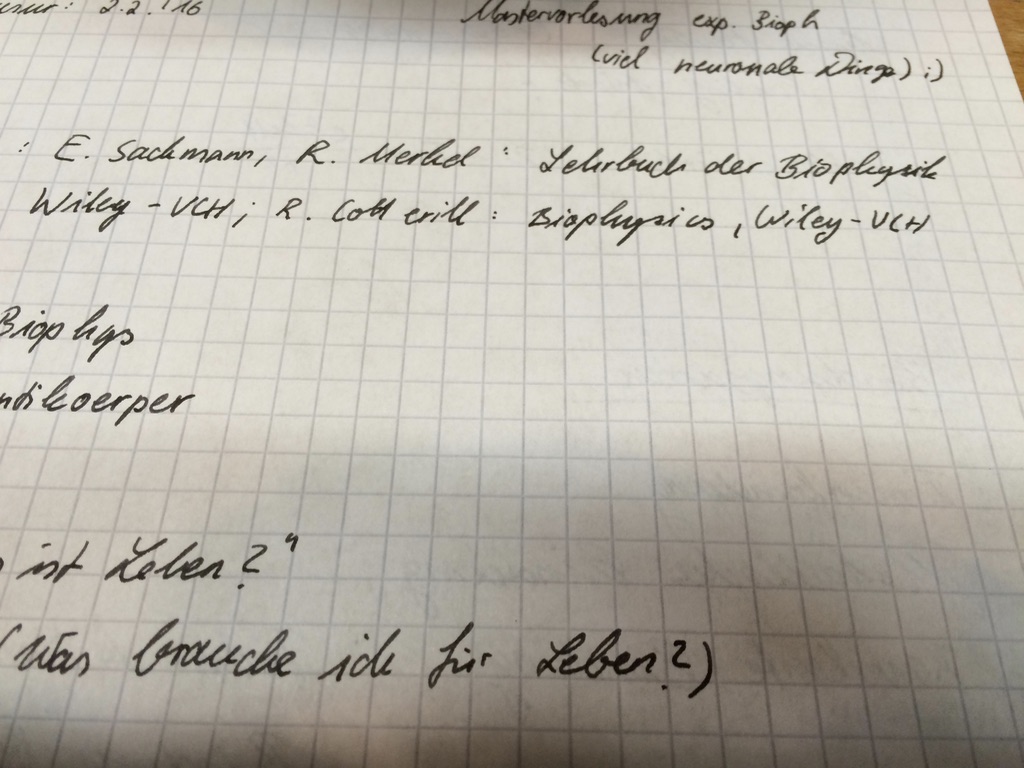 : 2.2.'16
Mastervorlesung exp. Bioph
(viel neuronale Dinge) ;)
: E. Sackmann, R. Merkel : Lehrbuch der Biophysik
Wiley-VCH; R. Cotterill : Biophysics, Wiley-VCH
Biophys
ntikoerper
ist Leben?"
(Was brauche ich für Leben?)